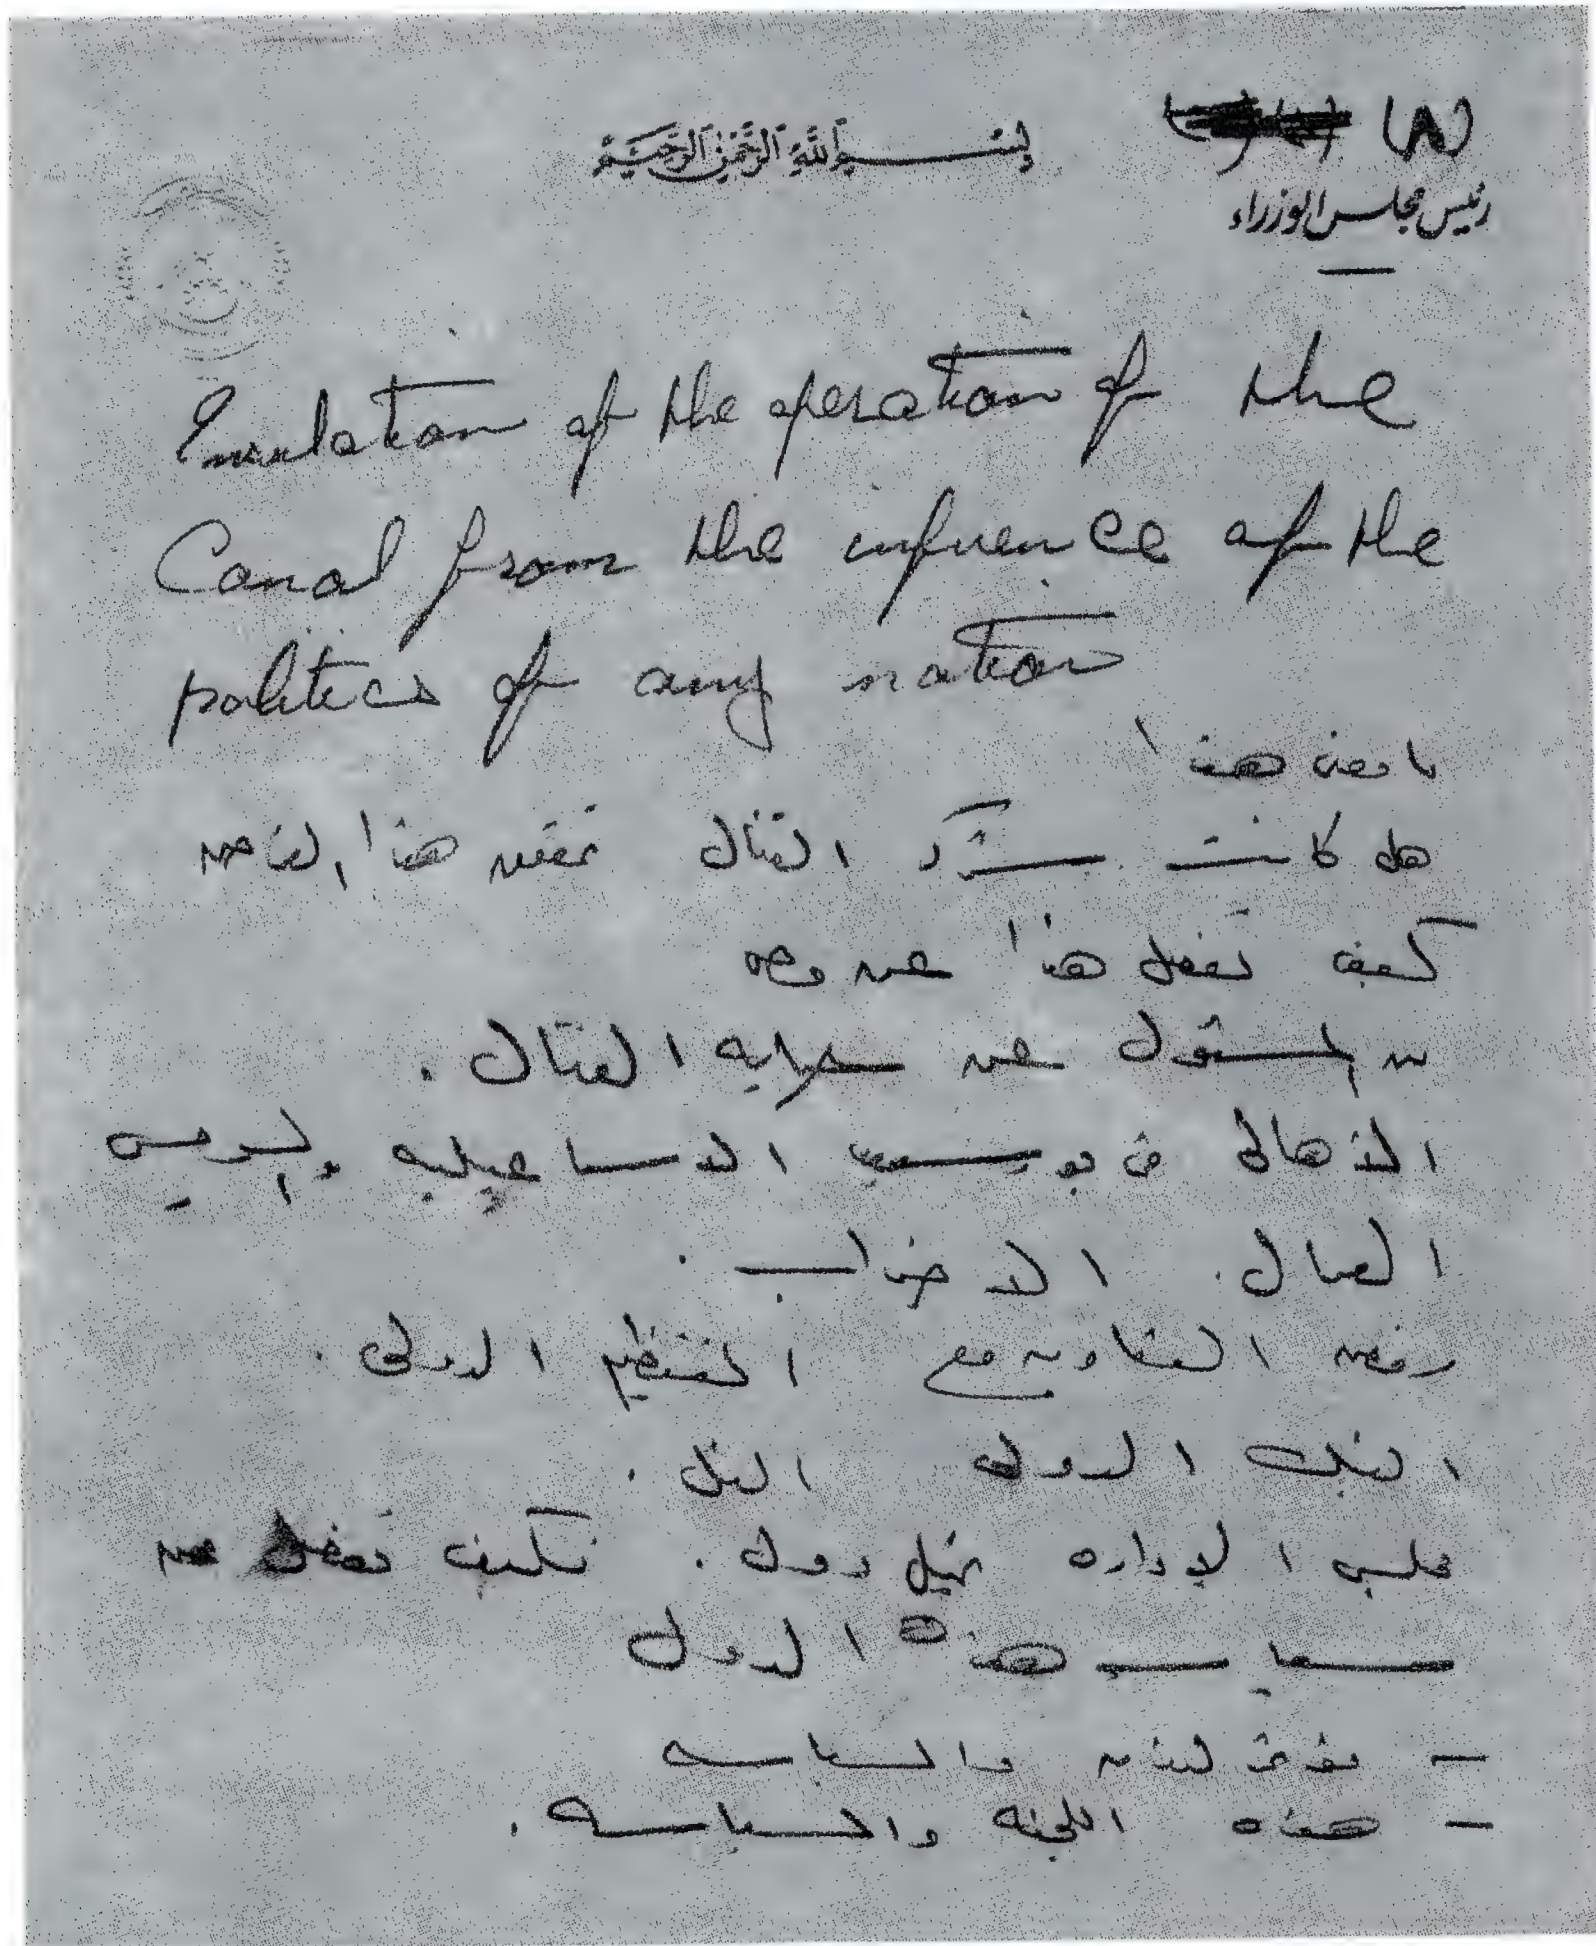 (٨)
بسم الله الرحمن الرحيم
رئيس مجلس الوزراء
Insulation of the operation of the
Canal from the influence of the
politics of any nation
ما معنى هذا
هل كانت شركة القنال تحقق هذا
كيف تفصل هذا عن مصر
من المسئول عن حماية القنال .
الاهالى فى بورسعيد الاسماعيلية والسويس
العمال . الاضراب .
رفض التعاون مع التنظيم الدولى .
البنك الدولى النيل .
مجلس الادارة يمثل دول . فكيف تفصل عن
سياسة هذه الدول
- مؤتمر لندن والسياسة
- هذه اللجنة والسياسة .